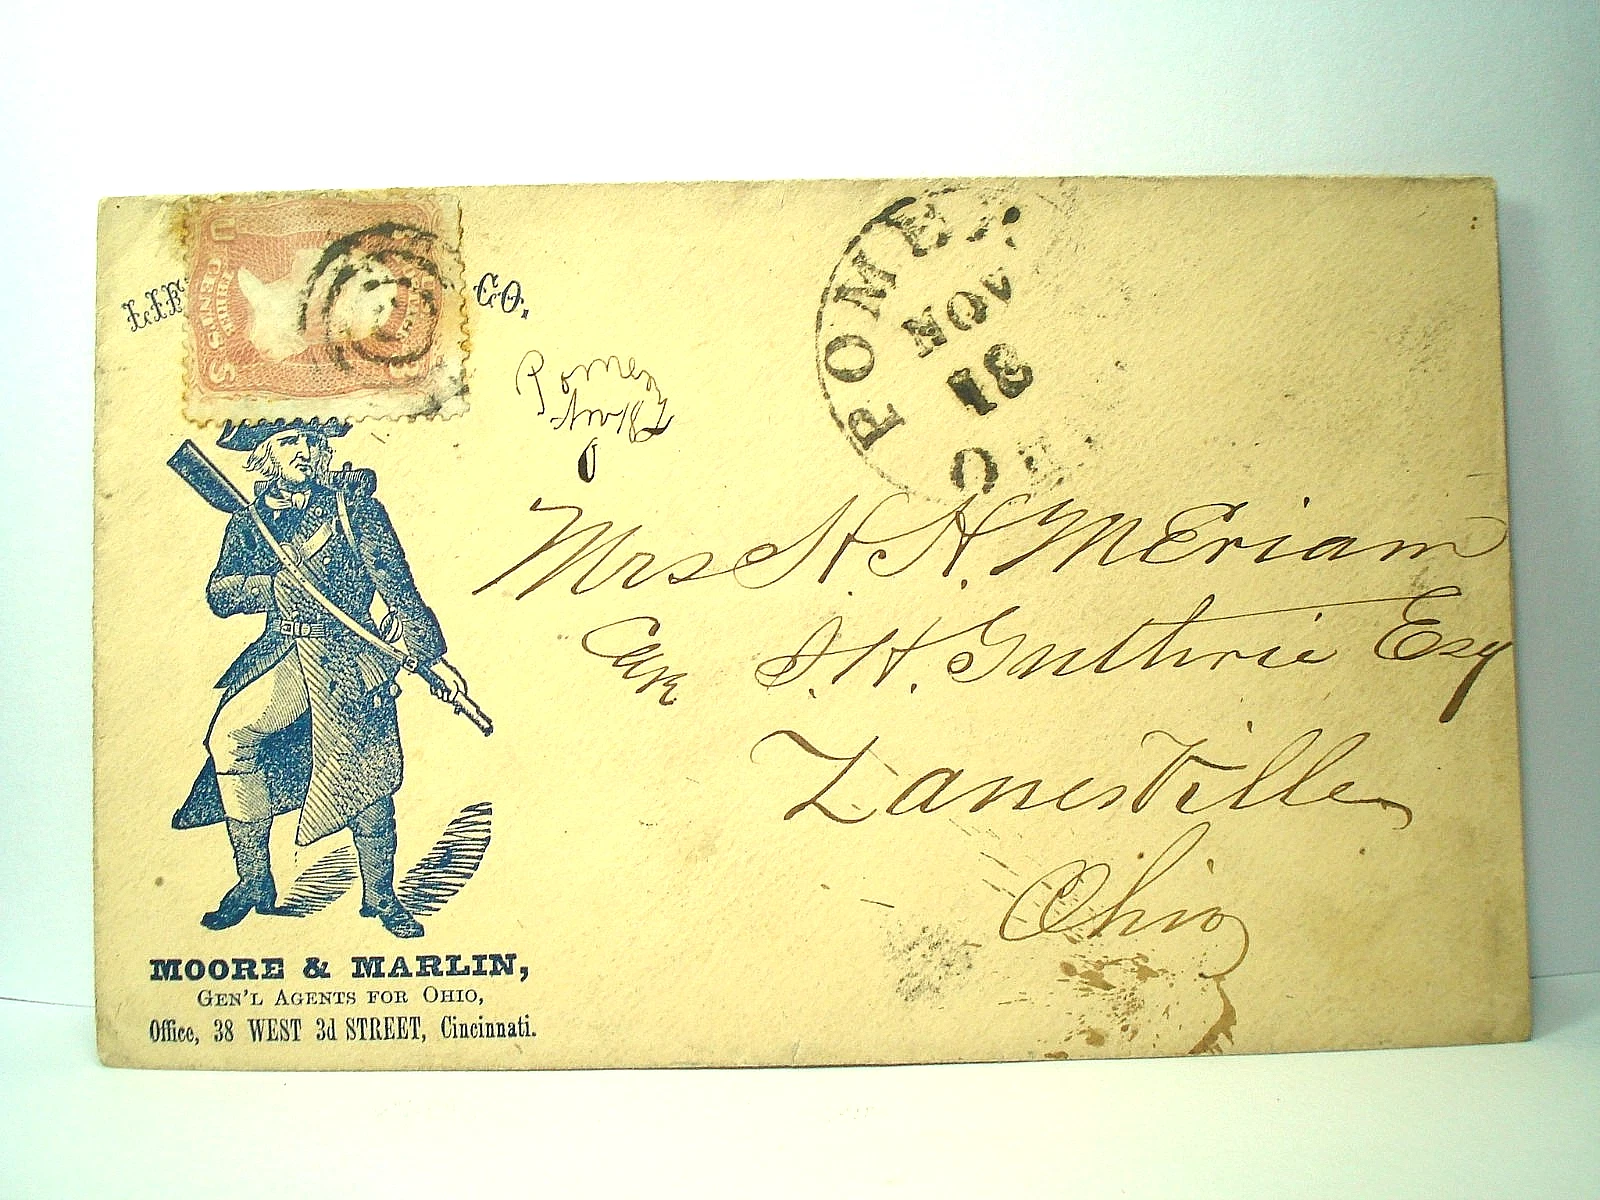 U
3 CENTS
CO.
Pomeroy
POMER
NOV
31
Mrs H. H. McEriam
Care S. H. Guthrie Esq
Zanesville
Ohio
MOORE & MARLIN,
GEN'L AGENTS FOR OHIO,
Office, 38 WEST 3d STREET, Cincinnati.